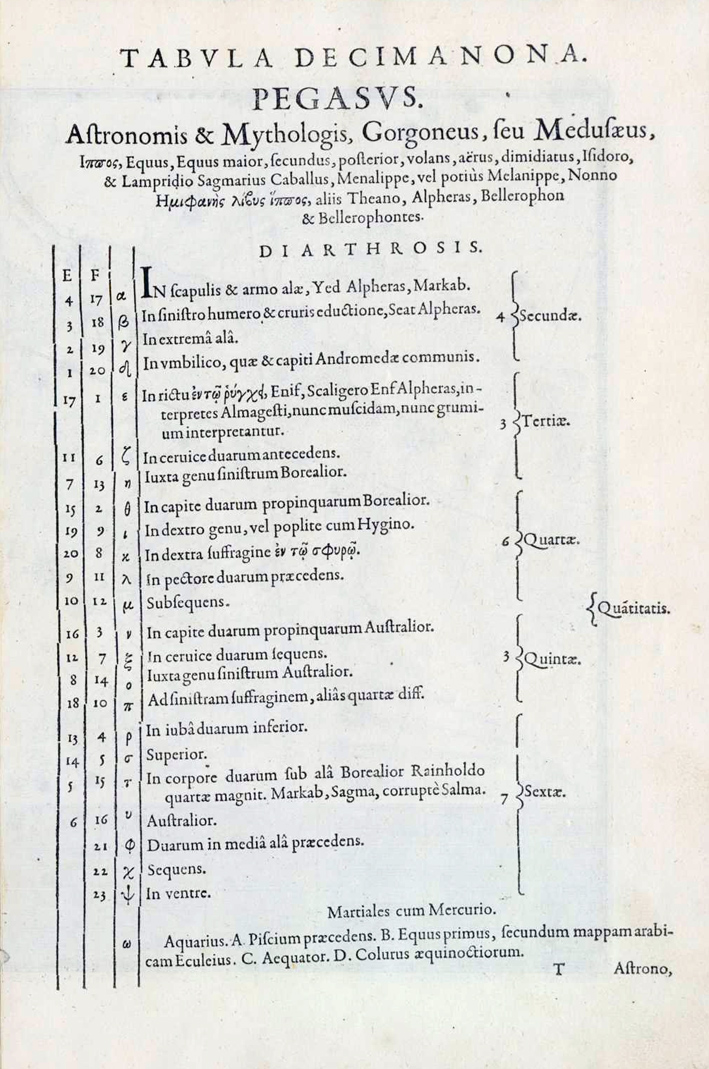 TABVLA DECIMANONA.
PEGASVS.
Aſtronomis & Mythologis, Gorgoneus, ſeu Meduſæus,
Ιππος, Equus, Equus maior, ſecundus, poſterior, volans, aërus, dimidiatus, Iſidoro,
& Lampridio Sagmarius Caballus, Menalippe, vel potiùs Melanippe, Nonno
Ημιφανὴς λίβυς ἵππος, aliis Theano, Alpheras, Bellerophon
& Bellerophontes.
DIARTHROSIS.
E F
4 17 α IN ſcapulis & armo alæ, Yed Alpheras, Markab.
3 18 β In ſiniſtro humero & cruris eductione, Seat Alpheras. 4 { Secundæ.
2 19 γ In extremâ alâ.
1 20 δ In vmbilico, quæ & capiti Andromedæ communis.
17 1 ε In rictu ἐν τῷ ῥύγχῳ, Enif, Scaligero Enf Alpheras, in-
terpretes Almageſti, nunc muſcidam, nunc grumi- 3 { Tertiæ.
um interpretantur.
11 6 ζ In ceruice duarum antecedens.
7 13 η Iuxta genu ſiniſtrum Borealior.
15 2 θ In capite duarum propinquarum Borealior.
19 9 ι In dextro genu, vel poplite cum Hygino.
20 8 κ In dextra ſuffragine ἐν τῷ σφυρῷ. 6 { Quartæ.
9 11 λ In pectore duarum præcedens.
10 12 μ Subſequens. { Quãtitatis.
16 3 ν In capite duarum propinquarum Auſtralior.
12 7 ξ In ceruice duarum ſequens. 3 { Quintæ.
8 14 ο Iuxta genu ſiniſtrum Auſtralior.
18 10 π Ad ſiniſtram ſuffraginem, aliâs quartæ diff.
13 4 ρ In iubâ duarum inferior.
14 5 σ Superior.
5 15 τ In corpore duarum ſub alâ Borealior Rainholdo
quartæ magnit. Markab, Sagma, corruptè Salma. 7 { Sextæ.
6 16 υ Auſtralior.
21 φ Duarum in mediâ alâ præcedens.
22 χ Sequens.
23 ψ In ventre.
Martiales cum Mercurio.
ω Aquarius. A. Piſcium præcedens. B. Equus primus, ſecundum mappam arabi-
cam Eculeius. C. Aequator. D. Colurus æquinoctiorum.
T Aſtrono,